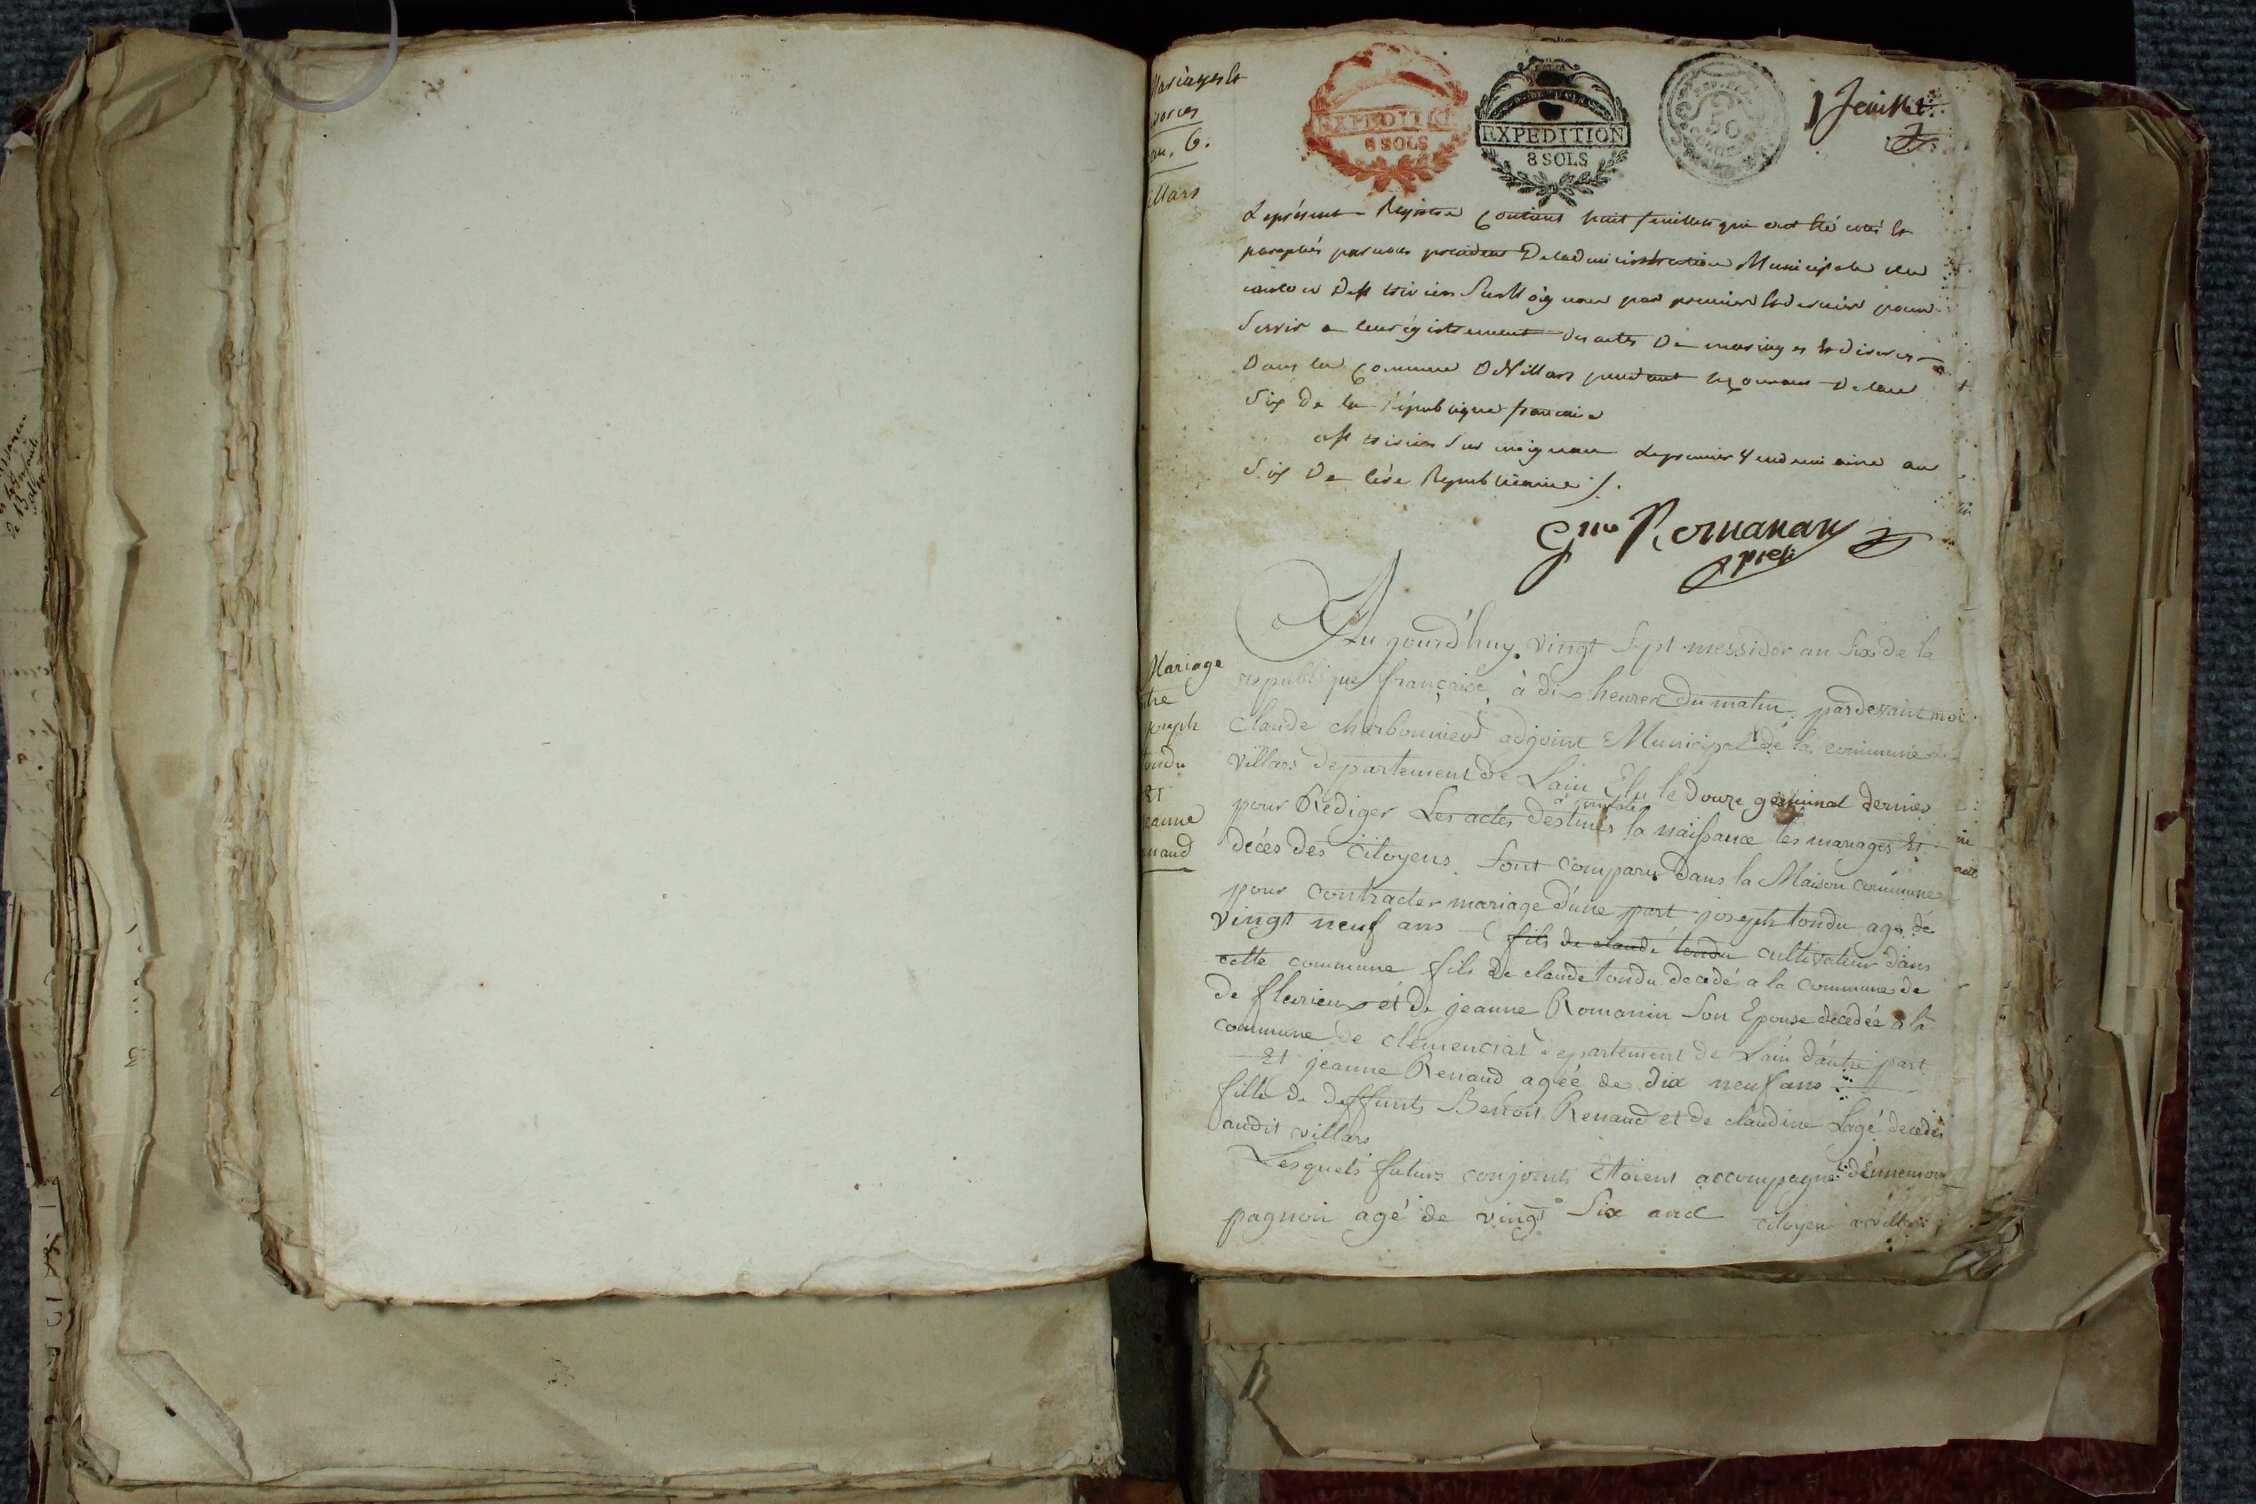 Mariages et
divorces
an. 6.
Villars
EXPEDITION
8 SOLS
EXPEDITION
8 SOLS
50
1 feuillet
Le présent Registre Contient huit feuillets qui ont été cotés et
paraphés par nous president De ladministration Municipale du
canton De st trivier Sur Moignans par premier et dernier pour
Servir a lenregistrement Des actes De mariages et divorces
Dans la Commune De Villars pendant le Courant De lan
Six De la République francaise
a st trivier Sur moignans Le premier Vendemiaire an
Six De l'ére Republicaine /.
Romanans
presi
Au gourd'huy vingt Sept messidor an Six de la
republique française, à dix heures du matin, pardevant moi
Claude charbonnier adjoint Municipal de la commune de
villars departement de Lain Elu le douze germinal dernier
à constater
pour Rédiger Les actes destinés la naissance les mariages Et
décés des Citoyens. Sont comparu dans la Maison commune
pour contracter mariage d'une part joseph tondu agé de
vingt neuf ans fils de claude tondu cultivateur dans
cette commune fils de claude tondu decedé a la commune de
de fleurieux et de jeanne Romanin Son Epouse decedée a la
commune de clémenciat departement de Lain d'autre part
Et jeanne Renaud agée de dix neuf ans
fille de deffunts Benoit Renaud et de claudine Lagé decedés
audit villars
Lesquels futurs conjoints Etoient accompagné d'Ennemon
pagnon agé de vingt Six ans citoyen a villars
Mariage
Entre
joseph
tondu
ET
jeanne
Renaud